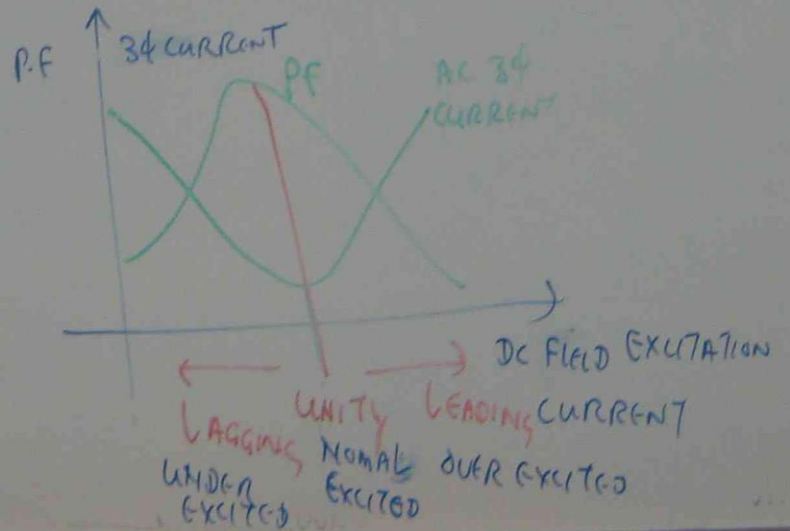 P.F
3ϕ CURRENT
PF
AC 3ϕ
CURRENT
DC FIELD EXCITATION
CURRENT
LAGGING
UNITY
LEADING
UNDER
EXCITED
NOMAL
EXCITED
OVER EXCITED